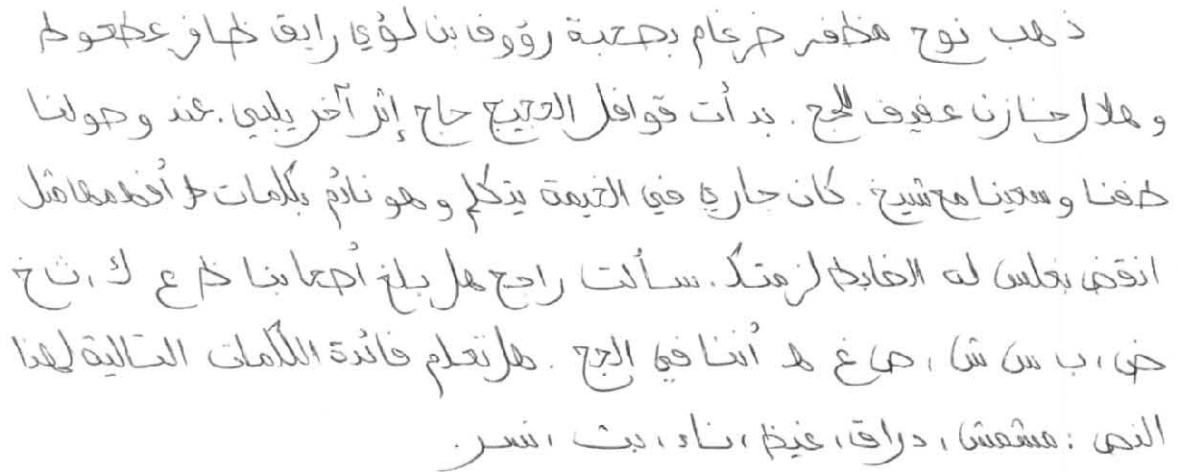 ذهب نوح مظفر ضرغام بصحبة رؤوف بن لؤي رايق ظافر عطعوط
وهلال حنازن عفيف للحج. بدأت قوافل الحجيج حاج إثر آخر يلبي. عند وصولنا
طفنا وسعينا مع شيخ. كان جاري في الخيمة يتكلم وهو نائم بكلمات لا أفهمها مثل
انقض بغلس له الضابط لزمتك. سألت راجح هل بلغ أصحابنا ظ ع ك، ث خ
ض، ب س ش، ص غ ه أننا في الحج. هل تعلم فائدة الكلمات التالية لهذا
النص: مشمش، دراق، غيظ، ناء، بث، نسر.